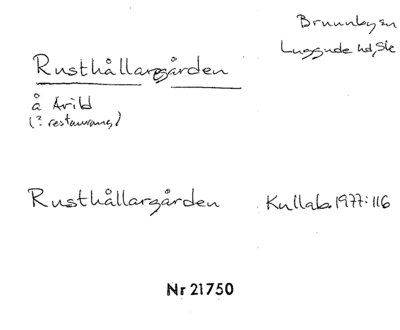 Brunnby sn
Luggude hd, Sk
Rusthållargården
å Arild
(? restaurang)
Rusthållargården Kullab. 1977:116
Nr 21750